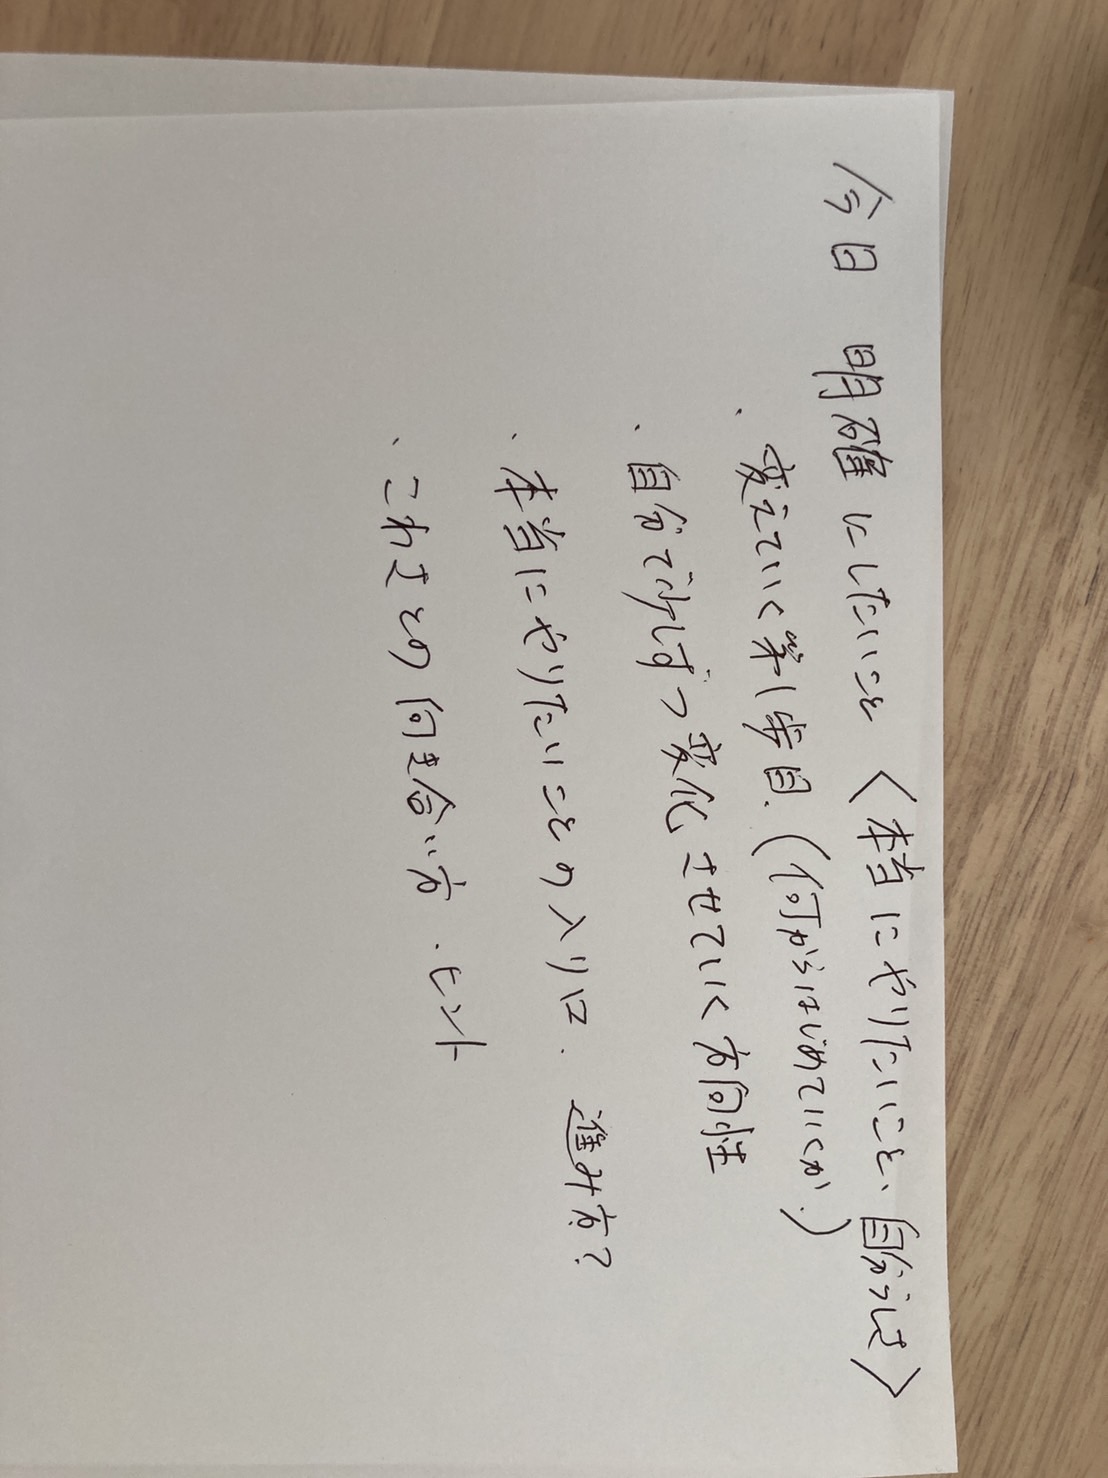 今日 明確にしたいこと <本当にやりたいこと、自分らしさ>
・変えていく第1歩目.(何からはじめていくか.)
・自分で少しずつ変化させていく方向性
・本当にやりたいことの入り口. 進み方?
・こわさとの向き合い方.ヒント